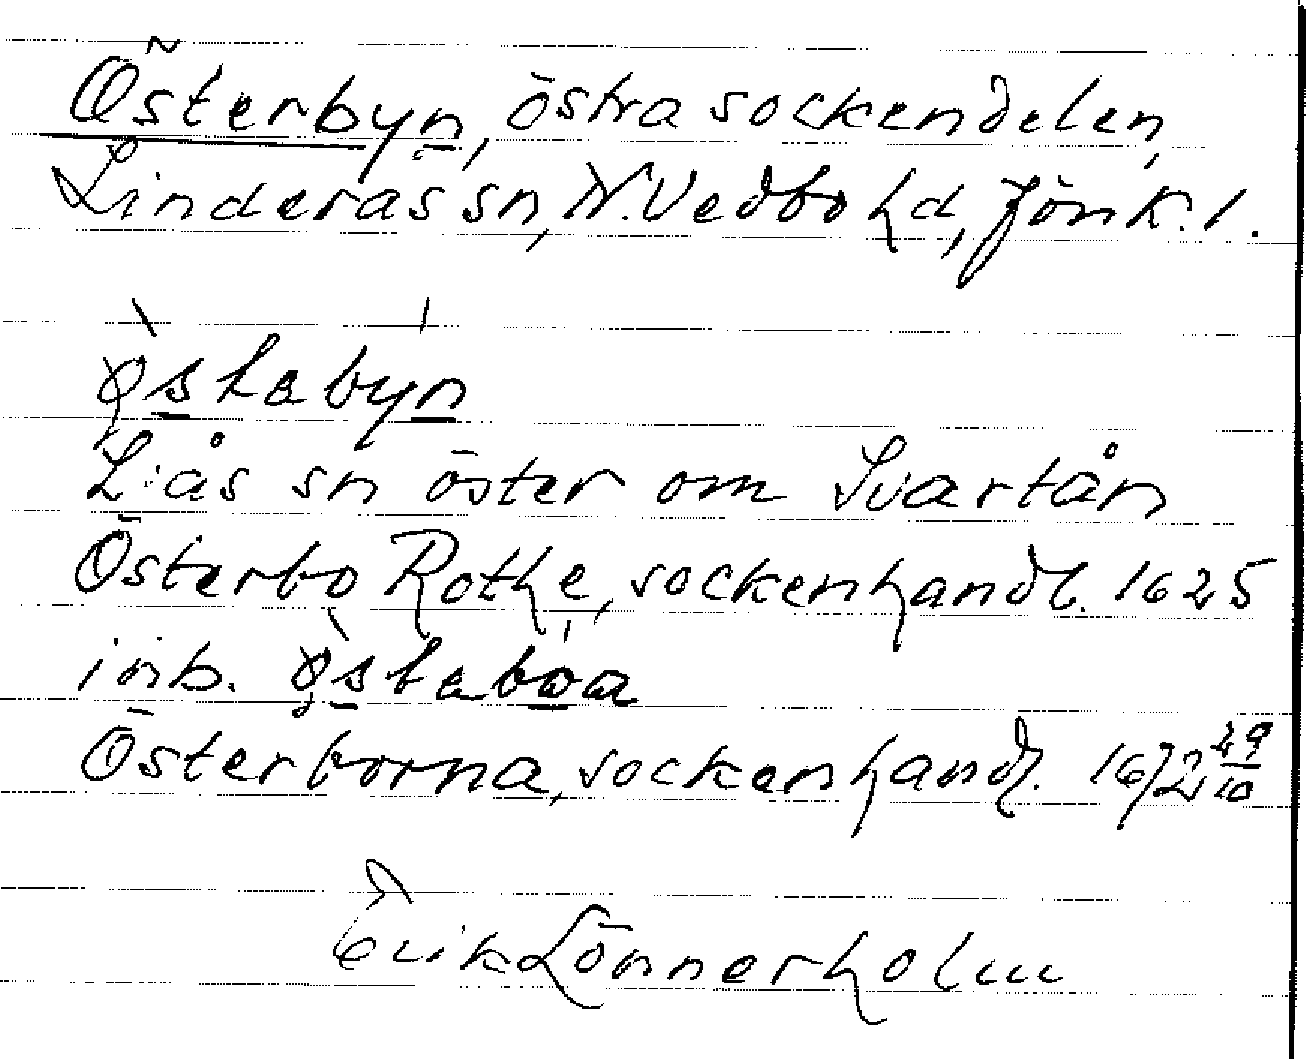 Österbyn, östra sockendelen,
Linderås sn, N. Vedbo hd, Jönk. l.
Östabyn
L:ås sn öster om Svartån
Österbo Rothe, sockenhandl. 1625
inb. östaboa
Österborna, sockenhandl. 1672 29/10
Erik Lönnerholm